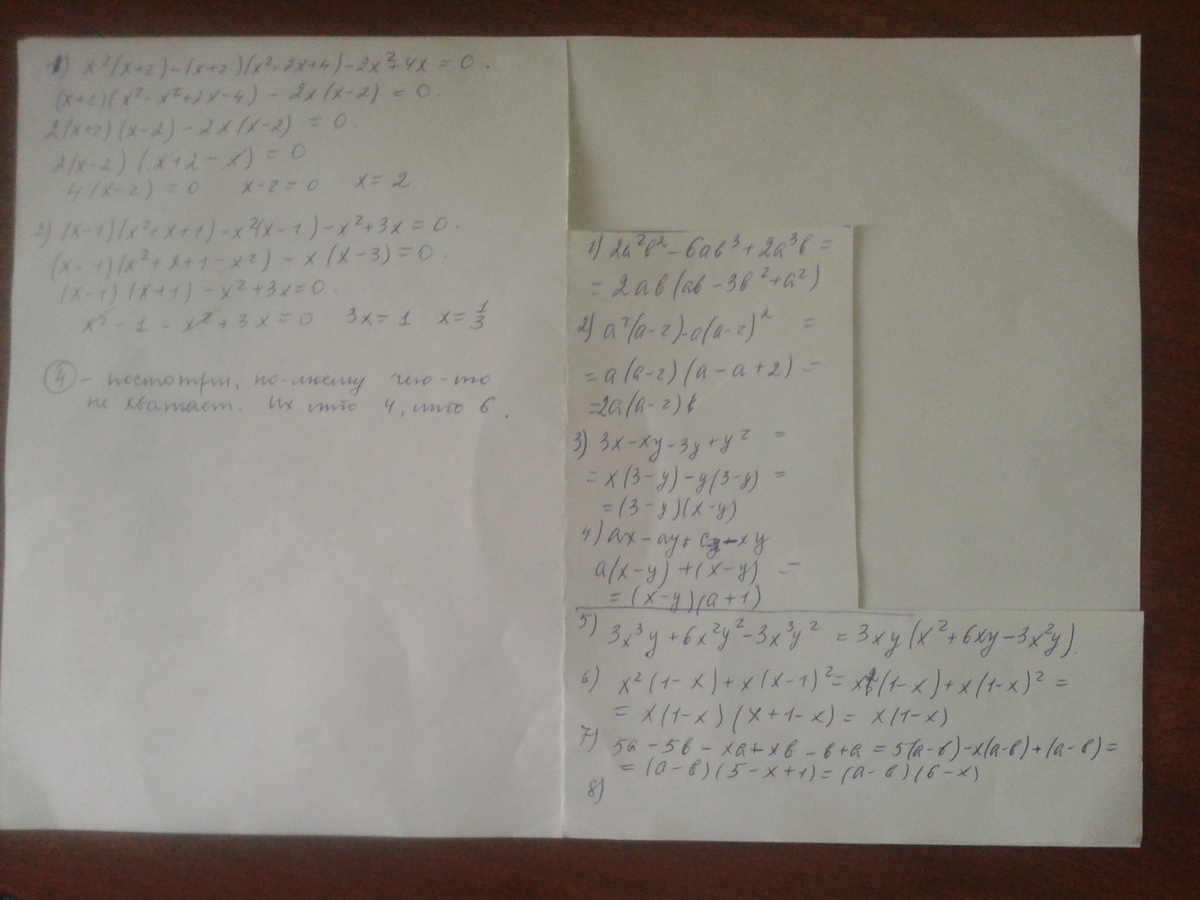 1) x²(x+2)-(x+2)(x²-2x+4)-2x²+4x=0.
(x+2)(x²-x²+2x-4)-2x(x-2)=0.
2(x+2)(x-2)-2x(x-2)=0.
2(x-2)(x+2-x)=0
4(x-2)=0 x-2=0 x=2
2) (x-1)(x²+x+1)-x²(x-1)-x²+3x=0.
(x-1)(x²+x+1-x²)-x(x-3)=0.
(x-1)(x+1)-x²+3x=0.
x²-1-x²+3x=0 3x=1 x=1/3
4 - посмотри, по-моему чего-то
не хватает. Их либо 4, либо 6.
1) 2a²b²-6ab³+2a³b=
=2ab(ab-3b²+a²)
2) a²(a-2)-a(a-2)²=
=a(a-2)(a-a+2)=
=2a(a-2)
3) 3x-xy-3y+y²=
=x(3-y)-y(3-y)=
=(3-y)(x-y)
4) ax-ay+cy-xy
a(x-y)+(x-y)=
=(x-y)(a+1)
5) 3x³y+6x²y²-3x³y²=3xy(x²+6xy-3x²y).
6) x²(1-x)+x(x-1)²=x²(1-x)+x(1-x)²=
=x(1-x)(x+1-x)=x(1-x)
7) 5a-5b-xa+xb-b+a=5(a-b)-x(a-b)+(a-b)=
=(a-b)(5-x+1)=(a-b)(6-x)
8)